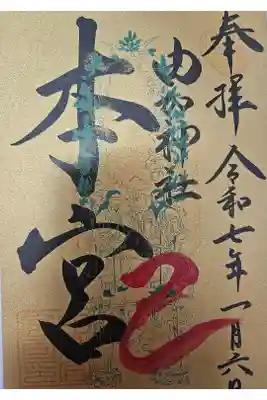 奉拝 令和七年一月六日
由加神社
本宮
巳